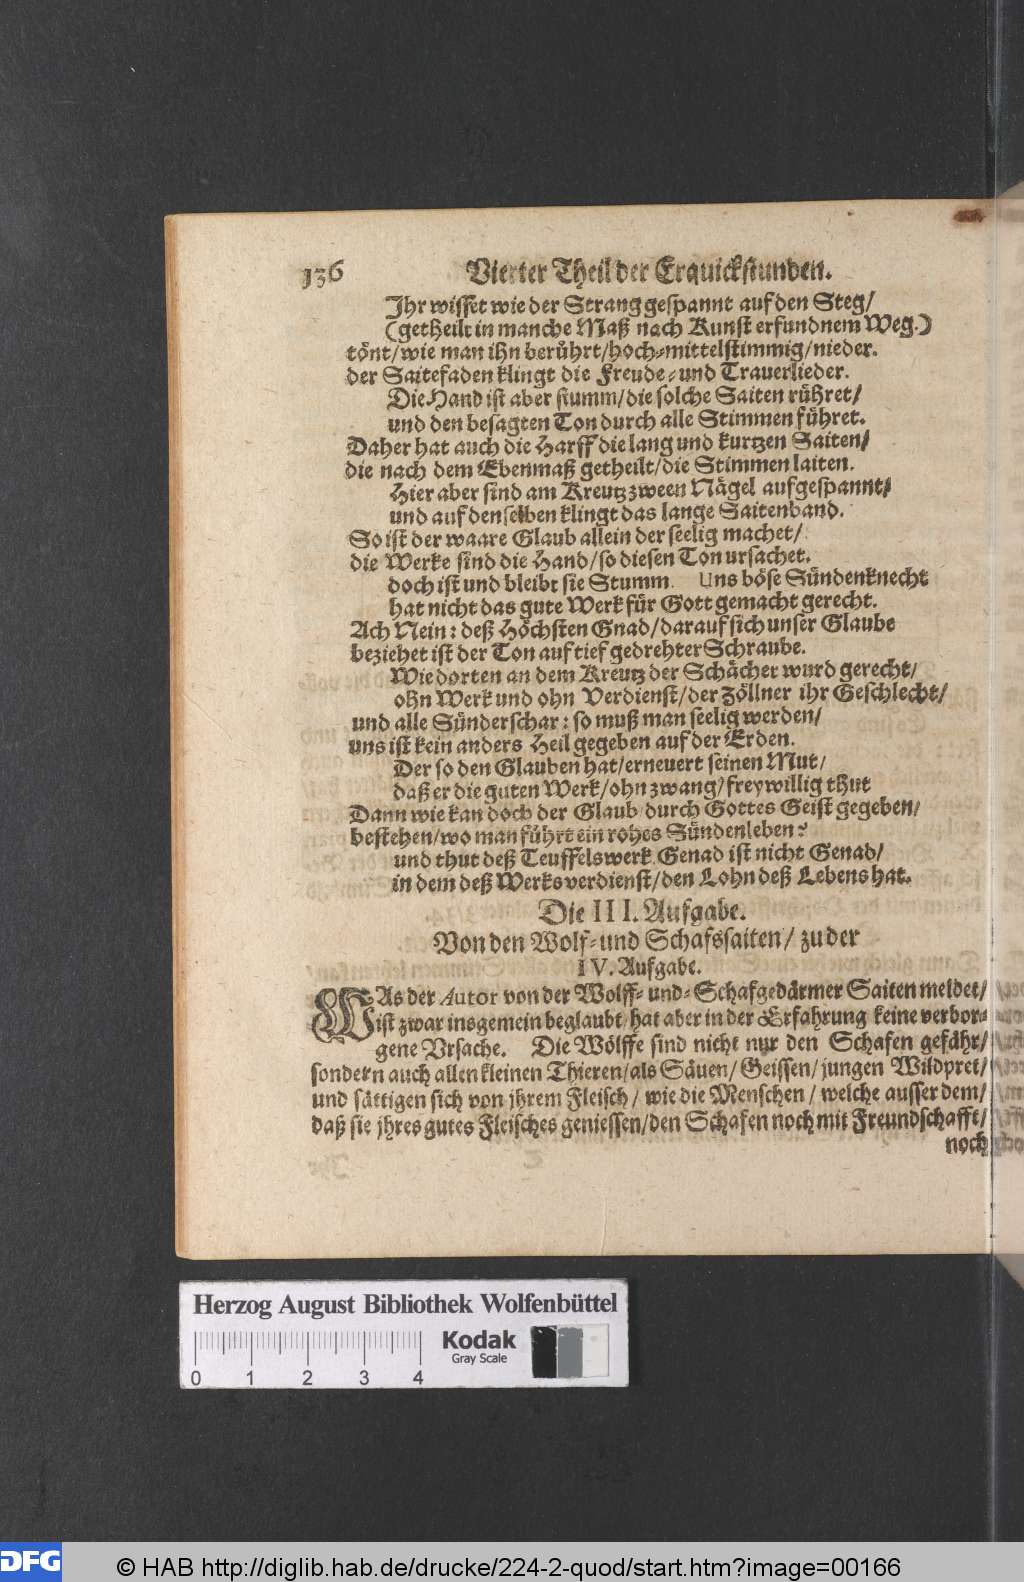 136 Vierter Theil der Erquickstunden.
Ihr wisset wie der Strang gespannt auf den Steg/
(getheilt in manche Maß nach Kunst erfundnem Weg.)
tönt/wie man ihn berührt/hoch-mittelstimmig/nieder.
der Saitefaden klingt die Freude- und Trauerlieder.
Die Hand ist aber stumm/die solche Saiten rühret/
und den besagten Ton durch alle Stimmen führet.
Daher hat auch die Harff die lang und kurtzen Saiten/
die nach dem Ebenmaß getheilt/die Stimmen laiten.
Hier aber sind am Kreutz zween Nägel aufgespannt/
und auf denselben klingt das lange Saitenband.
So ist der waare Glaub allein der seelig machet/
die Werke sind die Hand/so diesen Ton ursachet.
doch ist und bleibt sie Stumm. Uns böse Sündenknecht
hat nicht das gute Werk für Gott gemacht gerecht.
Ach Nein: deß Höchsten Gnad/darauf sich unser Glaube
beziehet ist der Ton auf tief gedrehter Schraube.
Wie dorten an dem Kreutz der Schächer wurd gerecht/
ohn Werk und ohn Verdienst/der Zöllner ihr Geschlecht/
und alle Sünderschar: so muß man seelig werden/
uns ist kein anders Heil gegeben auf der Erden.
Der so den Glauben hat/erneuert seinen Mut/
daß er die guten Werk/ohn zwang/freywillig thut
Dann wie kan doch der Glaub/durch Gottes Geist gegeben/
bestehen/wo man führt ein rohes Sündenleben?
und thut deß Teuffelswerk. Genad ist nicht Genad/
in dem deß Werks verdienst/den Lohn deß Lebens hat.
Die III. Aufgabe.
Von den Wolf- und Schafssaiten/ zu der
IV. Aufgabe.
WAs der Autor von der Wolff- und- Schafgedärmer Saiten meldet/
ist zwar insgemein beglaubt/hat aber in der Erfahrung keine verbor-
gene Vrsache. Die Wölffe sind nicht nur den Schafen gefähr/
sondern auch allen kleinen Thieren/als Säuen/Geissen/jungen Wildpret/
und sättigen sich von jhrem Fleisch/wie die Menschen/welche ausser dem/
daß sie jhres gutes Fleisches geniessen/den Schafen noch mit Freundschafft/
noch
Herzog August Bibliothek Wolfenbüttel
Kodak
Gray Scale
0 1 2 3 4
DFG © HAB http://diglib.hab.de/drucke/224-2-quod/start.htm?image=00166